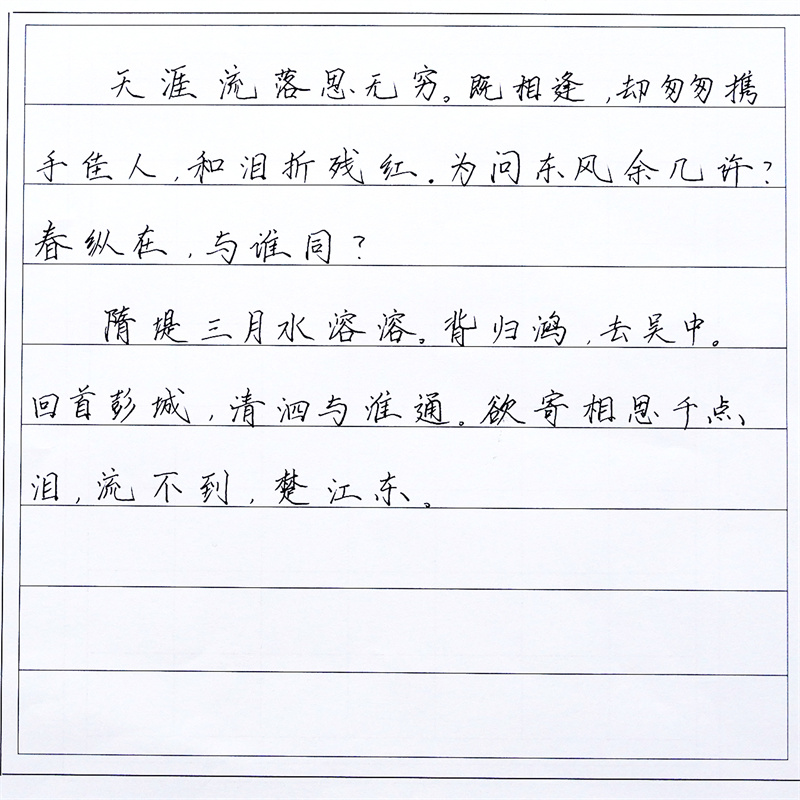 天涯流落思无穷。既相逢,却匆匆携
手佳人,和泪折残红。为问东风余几许?
春纵在,与谁同?
隋堤三月水溶溶。背归鸿,去吴中。
回首彭城,清泗与淮通。欲寄相思千点
泪,流不到,楚江东。